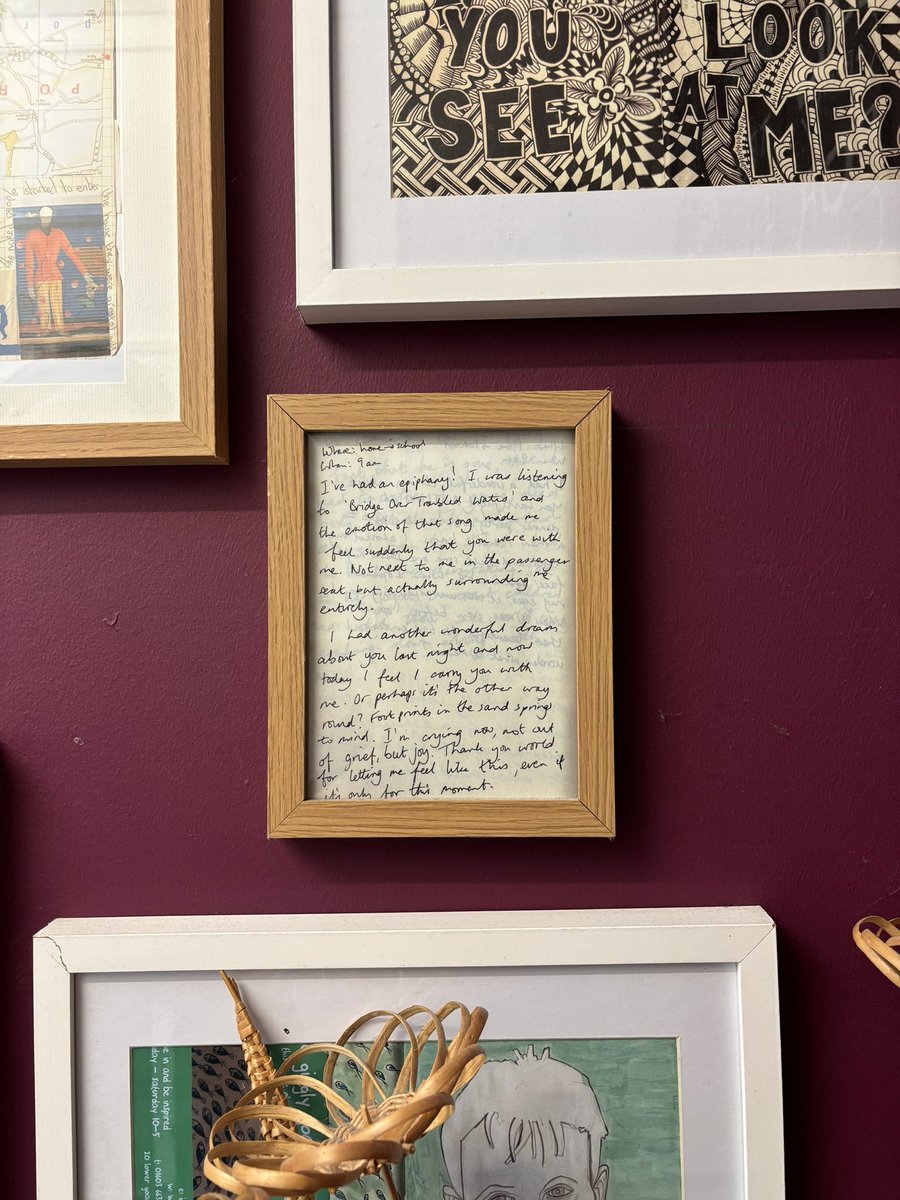 YOU LOOK
SEE AT ME?
people started to enter
Where: home → school
When: 9am.
I've had an epiphany! I was listening
to 'Bridge Over Troubled Water' and
the emotion of that song made me
feel suddenly that you were with
me. Not next to me in the passenger
seat, but actually surrounding me
entirely.
I had another wonderful dream
about you last night and now
today I feel I carry you with
me. Or perhaps it's the other way
round? Footprints in the sand springs
to mind. I'm crying now, not out
of grief, but joy. Thank you world
for letting me feel like this, even if
it's only for this moment.
e in and be inspired
day – saturday 10–5
20 lower